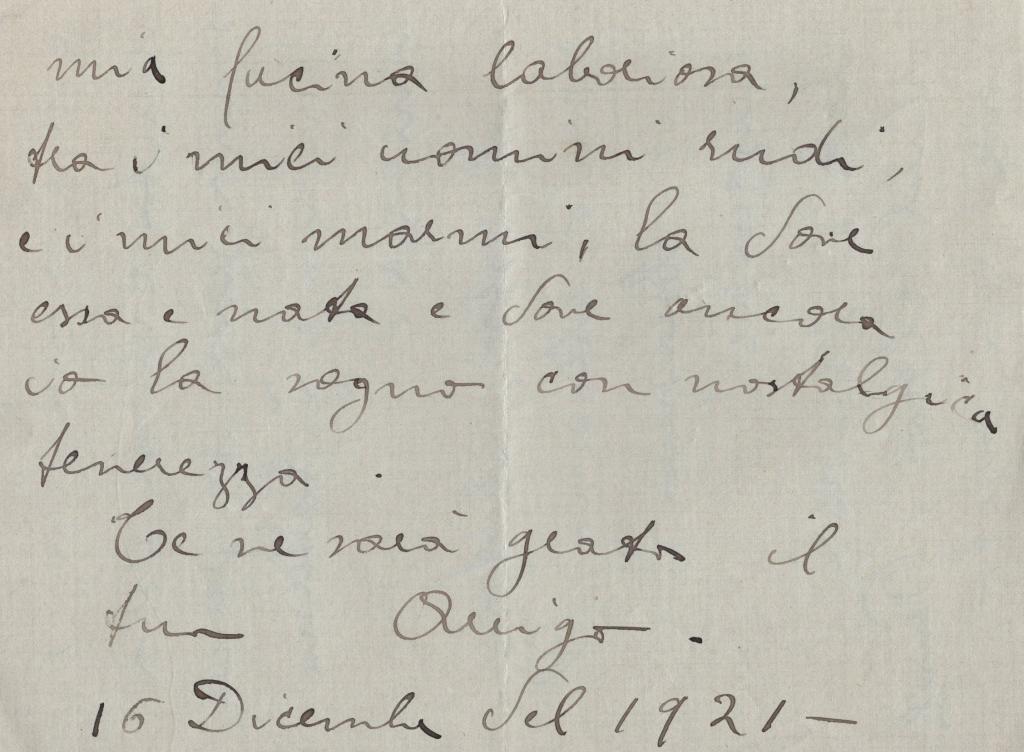 mia fucina laboriosa,
tra i miei uomini rudi,
e i miei marmi, la dove
essa e nata e dove ancora
io la sogno con nostalgica
tenerezza.
Te ne sarà grato il
tuo Arrigo.
16 Dicembre del 1921 —